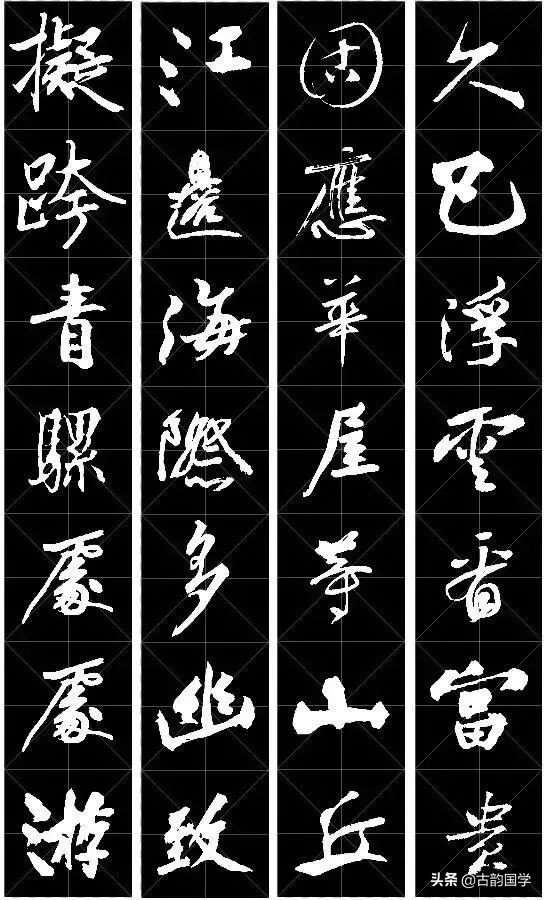 久已浮雲看富貴
固應華屋等山丘
江邊海際多幽致
擬跨青騾處處游
头条 @古韵国学